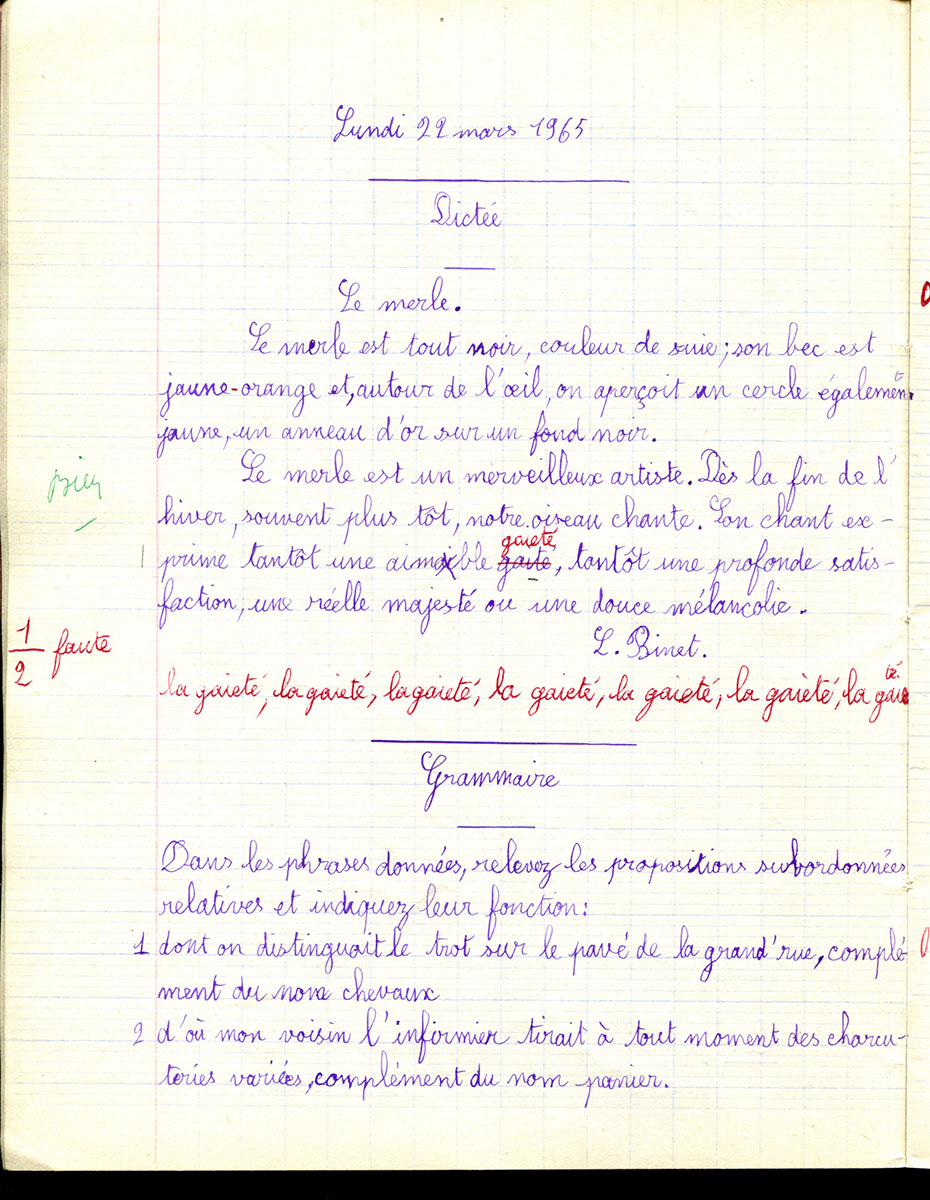 Lundi 22 mars 1965
Dictée
Le merle.
Le merle est tout noir, couleur de suie; son bec est
jaune-orange et, autour de l'œil, on aperçoit un cercle également
jaune, un anneau d'or sur un fond noir.
Le merle est un merveilleux artiste. Dès la fin de l'
bien
hiver, souvent plus tôt, notre oiseau chante. Son chant ex-
gaieté
prime tantôt une aimable gaité, tantôt une profonde satis-
faction, une réelle majesté ou une douce mélancolie.
1/2 faute
L. Binet.
la gaieté, la gaieté, la gaieté, la gaieté, la gaieté, la gaieté, la gaieté.
Grammaire
Dans les phrases données, relevez les propositions subordonnées
relatives et indiquez leur fonction:
1 dont on distinguait le trot sur le pavé de la grand'rue, complé-
ment du nom chevaux
2 d'où mon voisin l'infirmier tirait à tout moment des charcu-
teries variées, complément du nom panier.